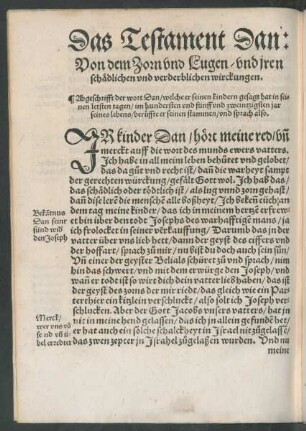 Das Testament Dan:
Von dem Zorn vnd Lugen / vnd jren
schädlichen vnd verderblichen wirckungen.
¶ Abgeschrifft der wort Dan / welche er seinen kindern gesagt hat in sei-
nen letsten tagen / im hundersten vnd fünff vnd zwentzigsten jar
seines lebens / berüfft er seinen stammen / vnd sprach also.
IR kinder Dan / hört meine red / vñ
merckt auff die wort des munds ewers vatters.
Ich habe in all meim leben behütet vnd gelobet /
das da gůt vnd recht ist / dañ die warheyt sampt
der gerechten würckung / gefält Got wol. Ich haß das /
das schädlich oder tödtlich ist / als lug vnnd zorn gehaßt /
dañ dise lere die menschē alle boßheyt / Ich beken euch an
dem tag meine kinder / das ich in meinem hertzē erfrewet
bin über den todt Josephs des warhafftigē mans / ja
ich frolocket in seiner verkauffung / Darumb das jn der
vatter über vns lieb hett / dann der geyst des eifers vnd
der hoffart / sprach zů mir / nu bist du doch auch sein sůn /
Vñ einer der geyster Belials schüret zů vnd sprach / nim
hin das schwert / vnd mit dem erwürge den Joseph / vnd
wañ er todt ist so wirt dich dein vatter lieb habē / das ist
der geyst des zorns der mir riedt / das gleich wie ein Par-
ter thier ein kitzlein verschlucket / also solt ich Joseph ver-
schlucken. Aber der Gott Jacobs vnsers vatters / hat jn
nit in meine hend gelassen / das ich jn allein gefundē het /
er hat auch ein solche schalckheyt in Israel nit zůgelassē /
das zwen zepter in Israhel zůgelaßen wurden. Vnd nu
meine
Bekātnus
Dan seiner
sünd wid
den Joseph
Merck /